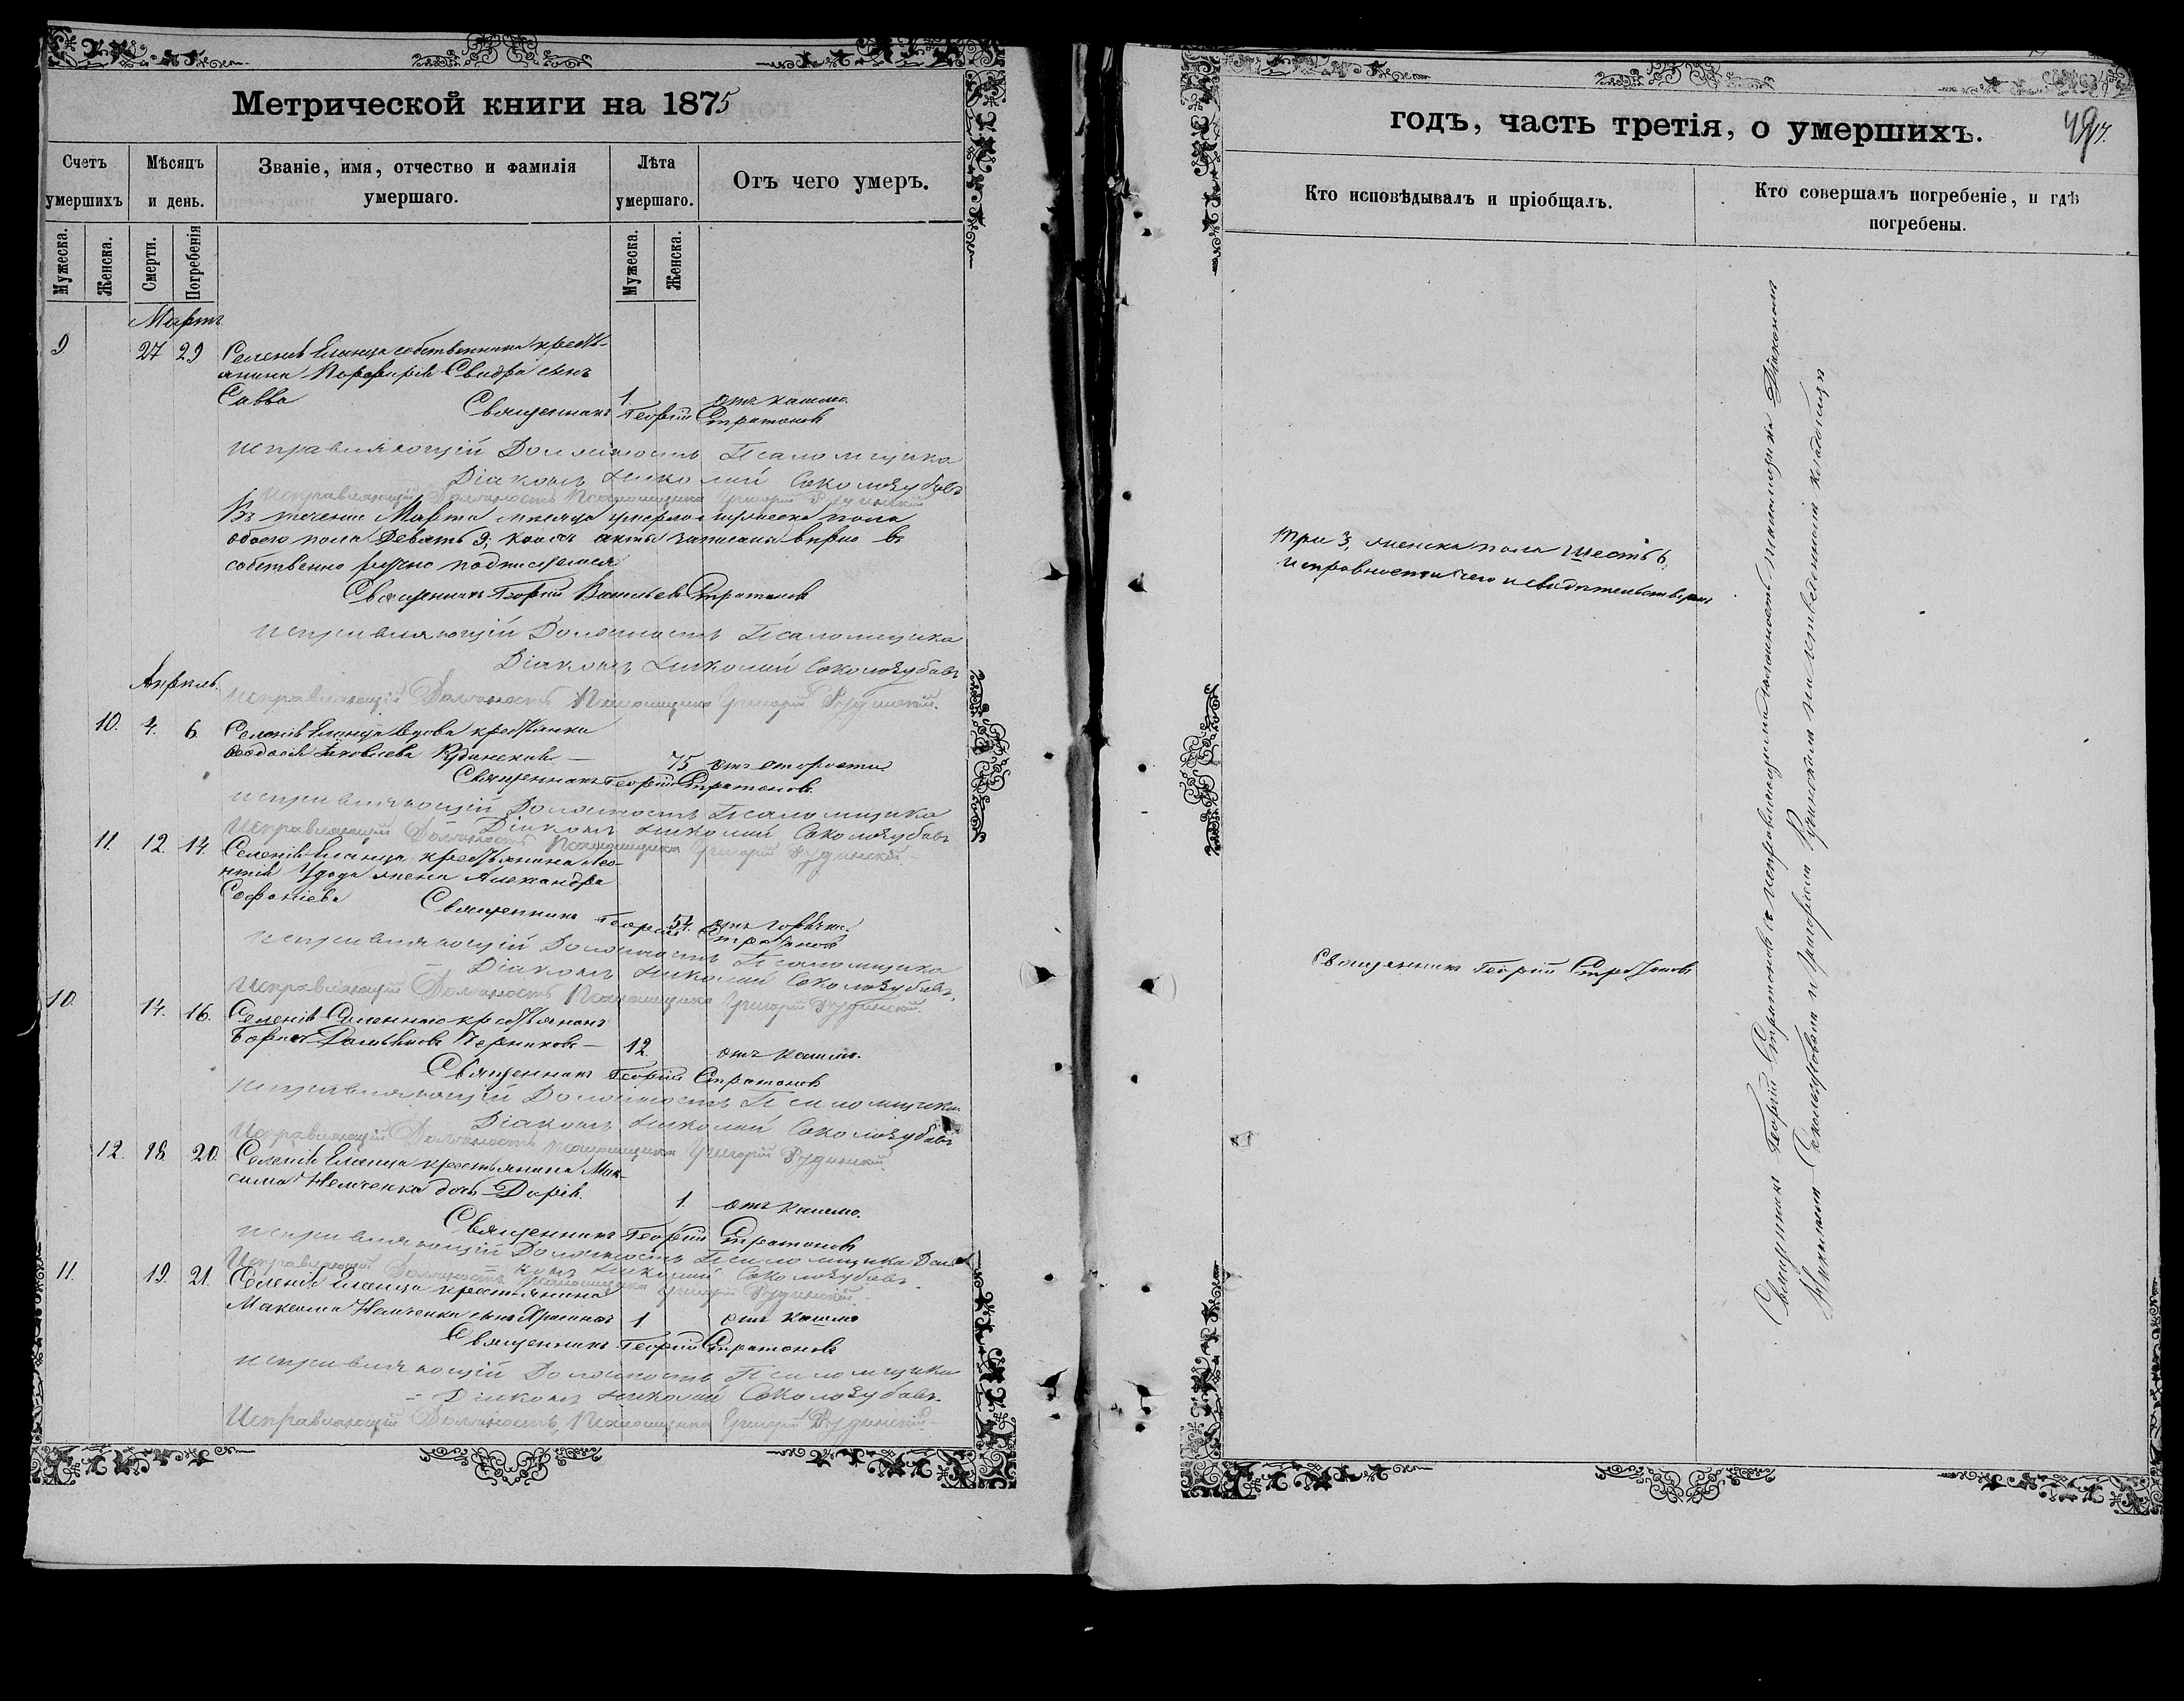 Метрической книги на 1875
Счетъ умершихъ
Мѣсяцъ и день.
Званіе, имя, отчество и фамилія умершаго.
Лѣта умершаго.
Отъ чего умеръ.
Мужеска.
Женска.
Смерти.
Погребенія
Мужеска.
Женска.
Мартъ
9 27 29 Селенія Еланца собственника крестья-
янина Порфирія Свидра сынъ
Савва 1. отъ кашлю.
Священникъ Георгій Стратоновъ
исправляющій Должность Псаломщика
Діаконъ Николай Соколозубовъ
Исправляющій Должность Псаломщика Григорій Рудинскій
Въ теченіе Марта мѣсяца умерло мужеска пола
обоего пола девять 9, коихъ акты записаны вѣрно въ
собственно ручно подписуемся
Священникъ Георгій Васильевъ Стратоновъ
исправляющій Должность Псаломщика
Діаконъ Николай Соколозубовъ
Апрель.
Исправляющій Должность Псаломщика Григорій Рудинскій.
10. 4. 6. Селенія Еланца вдова крестьянка
Ѳеодосія Яковлева 75 отъ старости
Священникъ Георгій Стратоновъ.
исправляющій Должность Псаломщика
Діаконъ Николай Соколозубовъ
Исправляющій Должность Псаломщика Григорій Рудинскій
11. 12. 14. Селенія Еланца крестьянина Лео-
нтія Удода жена Александра
Софоніева 54. отъ горячки.
Священникъ Георгій Стратоновъ
исправляющій Должность Псаломщика
Діаконъ Николай Соколозубовъ.
Исправляющій Должность Псаломщика Григорій Рудинскій.
10. 14. 16. Селенія крестьянинъ
Борисъ 12. отъ кашлю.
Священникъ Георгій Стратоновъ
исправляющій Должность Псаломщика
Діаконъ Николай Соколозубовъ
Исправляющій Должность Псаломщика Григорій Рудинскій
12. 18. 20. Селенія Еланца крестьянина Мак-
сима Немченка дочь Дарія. 1. отъ кашлю.
Священникъ Георгій Стратоновъ
исправляющій Должность Псаломщика Діа
конъ Николай Соколозубовъ.
Исправляющій Должность Псаломщика Григорій Рудинскій.
11. 19. 21. Селенія Еланца крестьянина
Максима Немченка сынъ 1 отъ кашлю
Священникъ Георгій Стратоновъ
исправляющій Должность Псаломщика
Діаконъ Николай Соколозубовъ.
Исправляющій Должность Псаломщика Григорій Рудинскій
годъ, часть третія, о умершихъ.
49
Кто исповѣдывалъ и пріобщалъ.
Кто совершалъ погребеніе, и гдѣ погребены.
три 3, женска пола шесть 6,
исправности чего и свидѣтельствуемъ
Священникъ Георгій Стратоновъ
Священникъ Георгій Стратоновъ съ исправляющими должность псаломщика Діакономъ
Николаемъ Соколозубовымъ и Григоріемъ Рудинскимъ на кладбищѣ